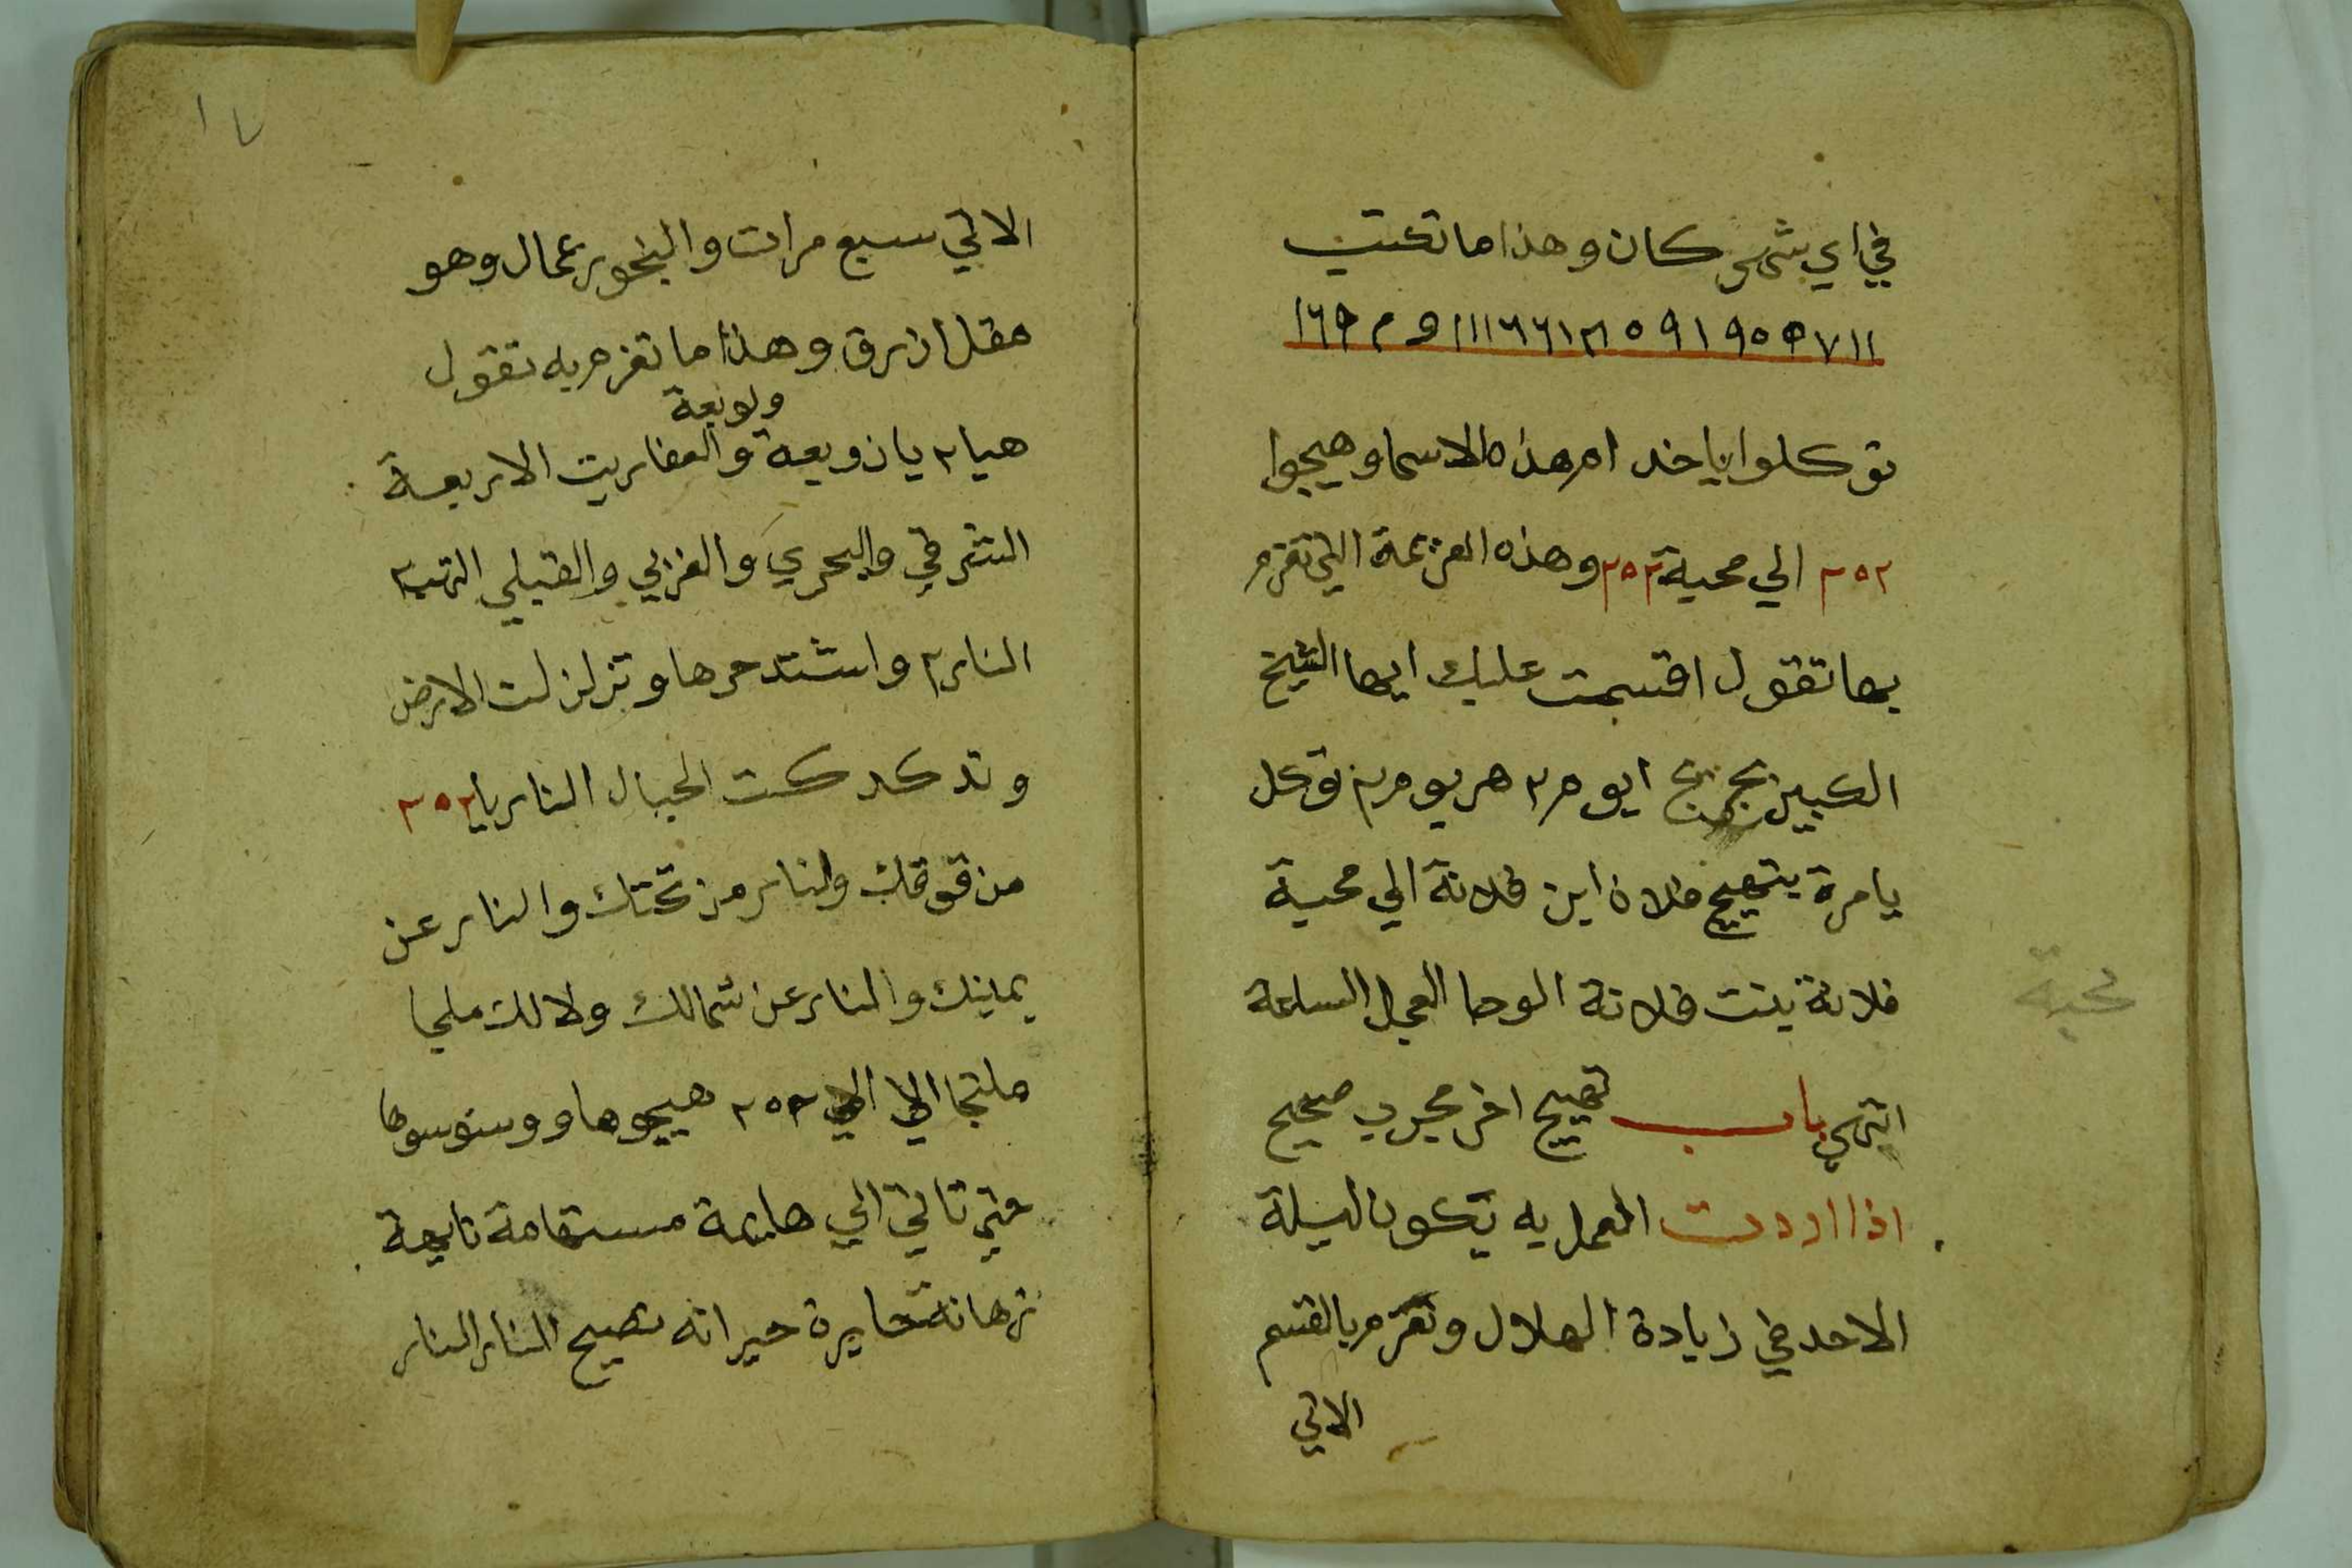 في اي شي كان وهذا ما تكتب
١١٧٩٥٩١٩٥٢١٦٦١١١و٢١٦٩
توكلوا ياخدام هذه الاسما وهيجوا
٢٥٢ الي محبة ٢٥٢ وهذه العزيمة التي تعزم
بها تقول اقسمت عليك ايها الشيخ
الكبيز ايوم ٢ هريوم ٢ توكل
يا مرة بتهيج فلان ابن فلانة الي محبة
فلانة بنت فلانة الوحا العجل الساعة
انتهي باب تهييج اخر مجرب صحيح
اذا اردت العمل به تكون ليلة
الاحد في زيادة الهلال وتعزم بالقسم
الاتي
محبة
١٧
الاتي سبع مرات والبخور عمال وهو
مقل ازرق وهذا ما تعزم به تقول
ولوبعة
هيا ٢ يا زوبعة والعفاريت الاربعة
الشرقي والبحري والغربي والقبلي
النار ٢ واشتد حرها وتزلزلت الارض
وتدكدكت الجبال النار يا ٢٥٢
من فوقك والنار من تحتك والنار عن
يمينك والنار عن شمالك ولا لك ملجا
ملتجا الا الي ٢٥٢ هييجوها ووسوسوها
حتي تاتي الي هايمة مستهامة تابعة
حايرة حيرانه تصيح النار النار